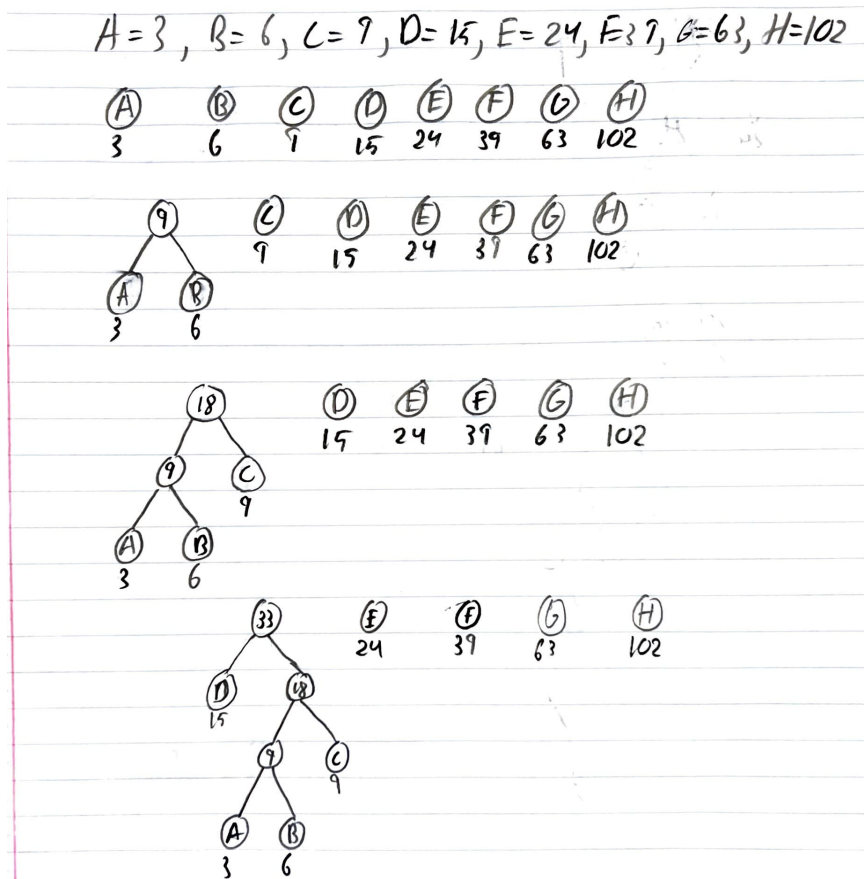 A = 3 , B = 6 , C = 9 , D = 15 , E = 24 , F=39 , G=63 , H=102
A B C D E F G H
3 6 9 15 24 39 63 102
9 C D E F G H
9 15 24 39 63 102
A B
3 6
18 D E F G H
15 24 39 63 102
9 C
9
A B
3 6
33 E F G H
24 39 63 102
D 18
15
9 C
9
A B
3 6